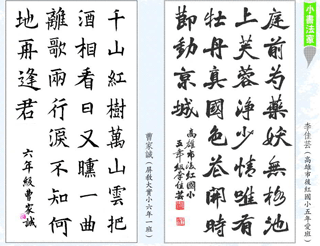 小書法家
李佳芸（高雄市後紅國小五年愛班）
庭前芍藥妖無格池
上芙蓉淨少情唯有
牡丹真國色花開時
節動京城
高雄市後紅國小
李佳芸
曹家誠（屏教大實小六年一班）
千山紅樹萬山雲把
酒相看日又曛一曲
離歌兩行淚不知何
地再逢君
六年級曹家誠